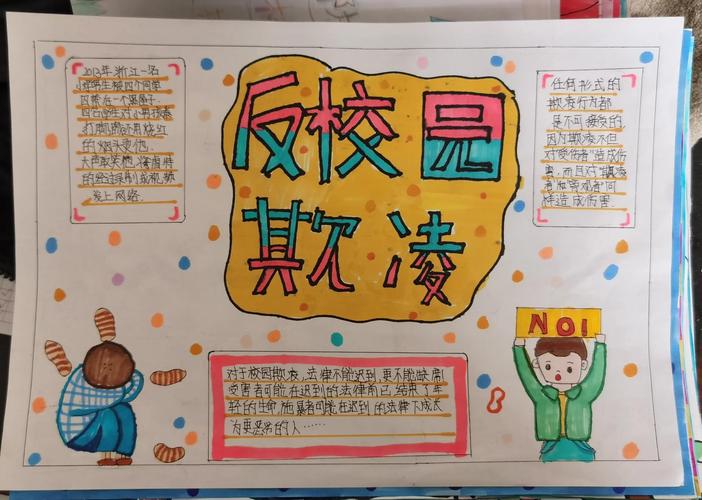 反校园
欺凌
2013年浙江一名
小学男生被四个同学
囚禁在一个黑屋子.
四名学生对小男孩拳
打脚踢并用烧红
的烟头烫他.
大声取笑他.将虐待
的经过录制成视频
发上网络.
任何形式的
欺凌行为都
是不可接受的
因为欺凌不但
对受伤者造成伤
害,而且对"欺凌
者"和"旁观者"同
样造成伤害
对于校园欺凌,法律不能迟到,更不能缺席
受害者可能在迟到的法律前已结束了年
轻的生命,施暴者可能在迟到的法律下成长
为更恶劣的人……
NO!